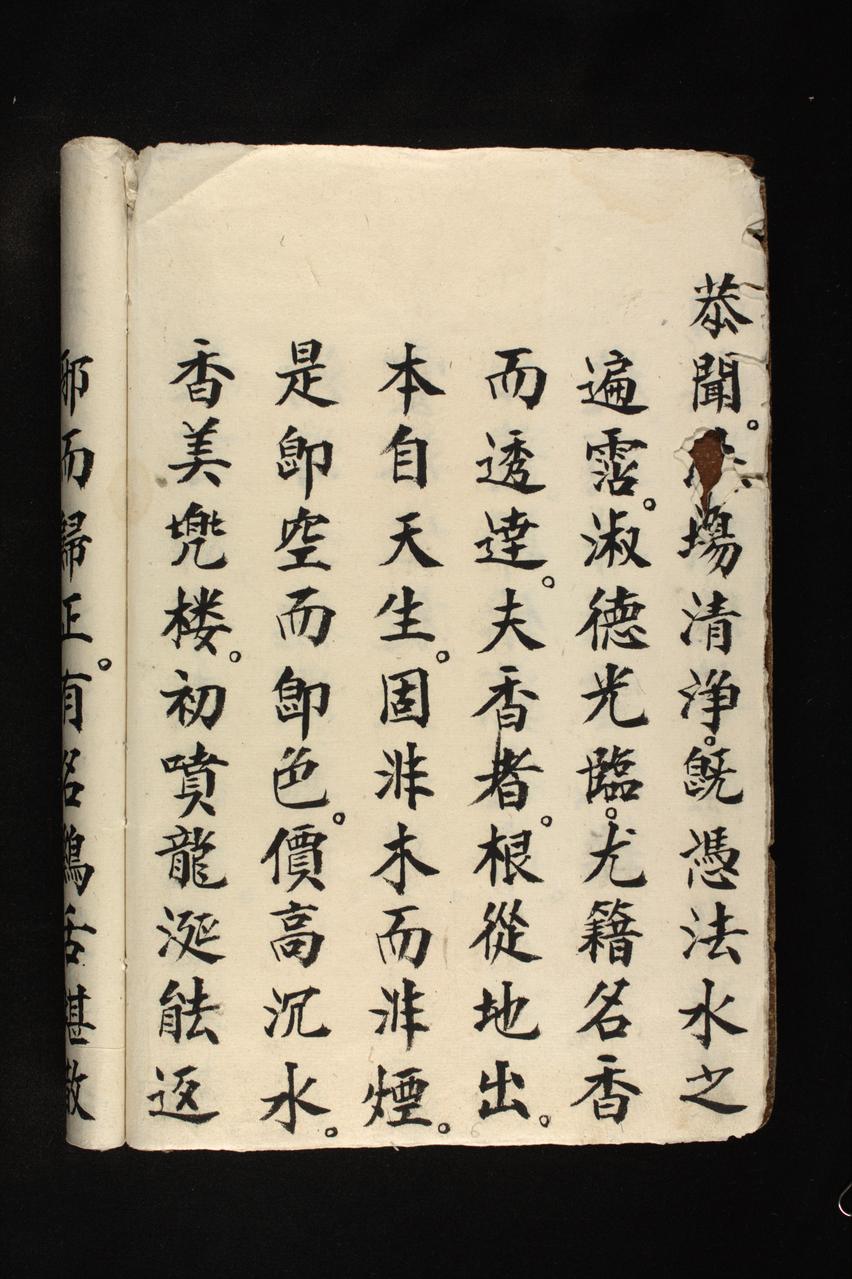 恭聞。場清淨。旣憑法水之
遍霑。淑德光臨。尤籍名香
而透達。夫香者。根從地出。
本自天生。固非木而非煙。
是卽空而卽色。價高沉水。
香美兠楼。初噴龍涎能返
邪而歸正。有名鷄舌堪散